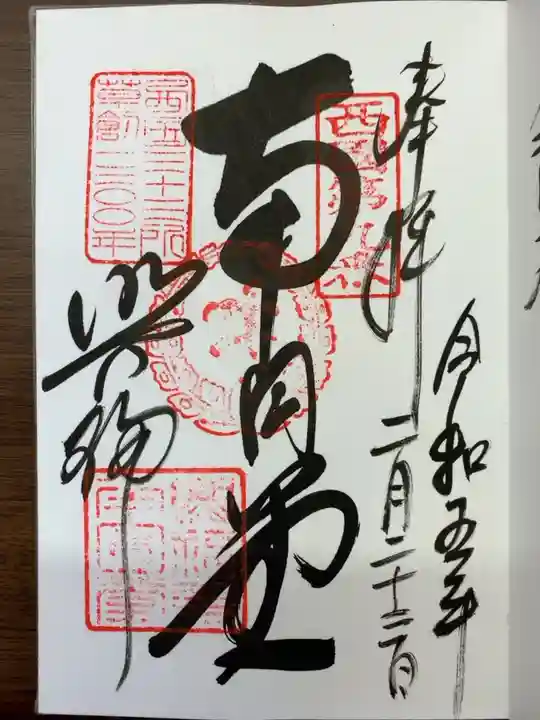 令和五年
二月二十二日
奉拝
西国第九番
南円堂
西国三十三所
草創一三〇〇年
興福寺